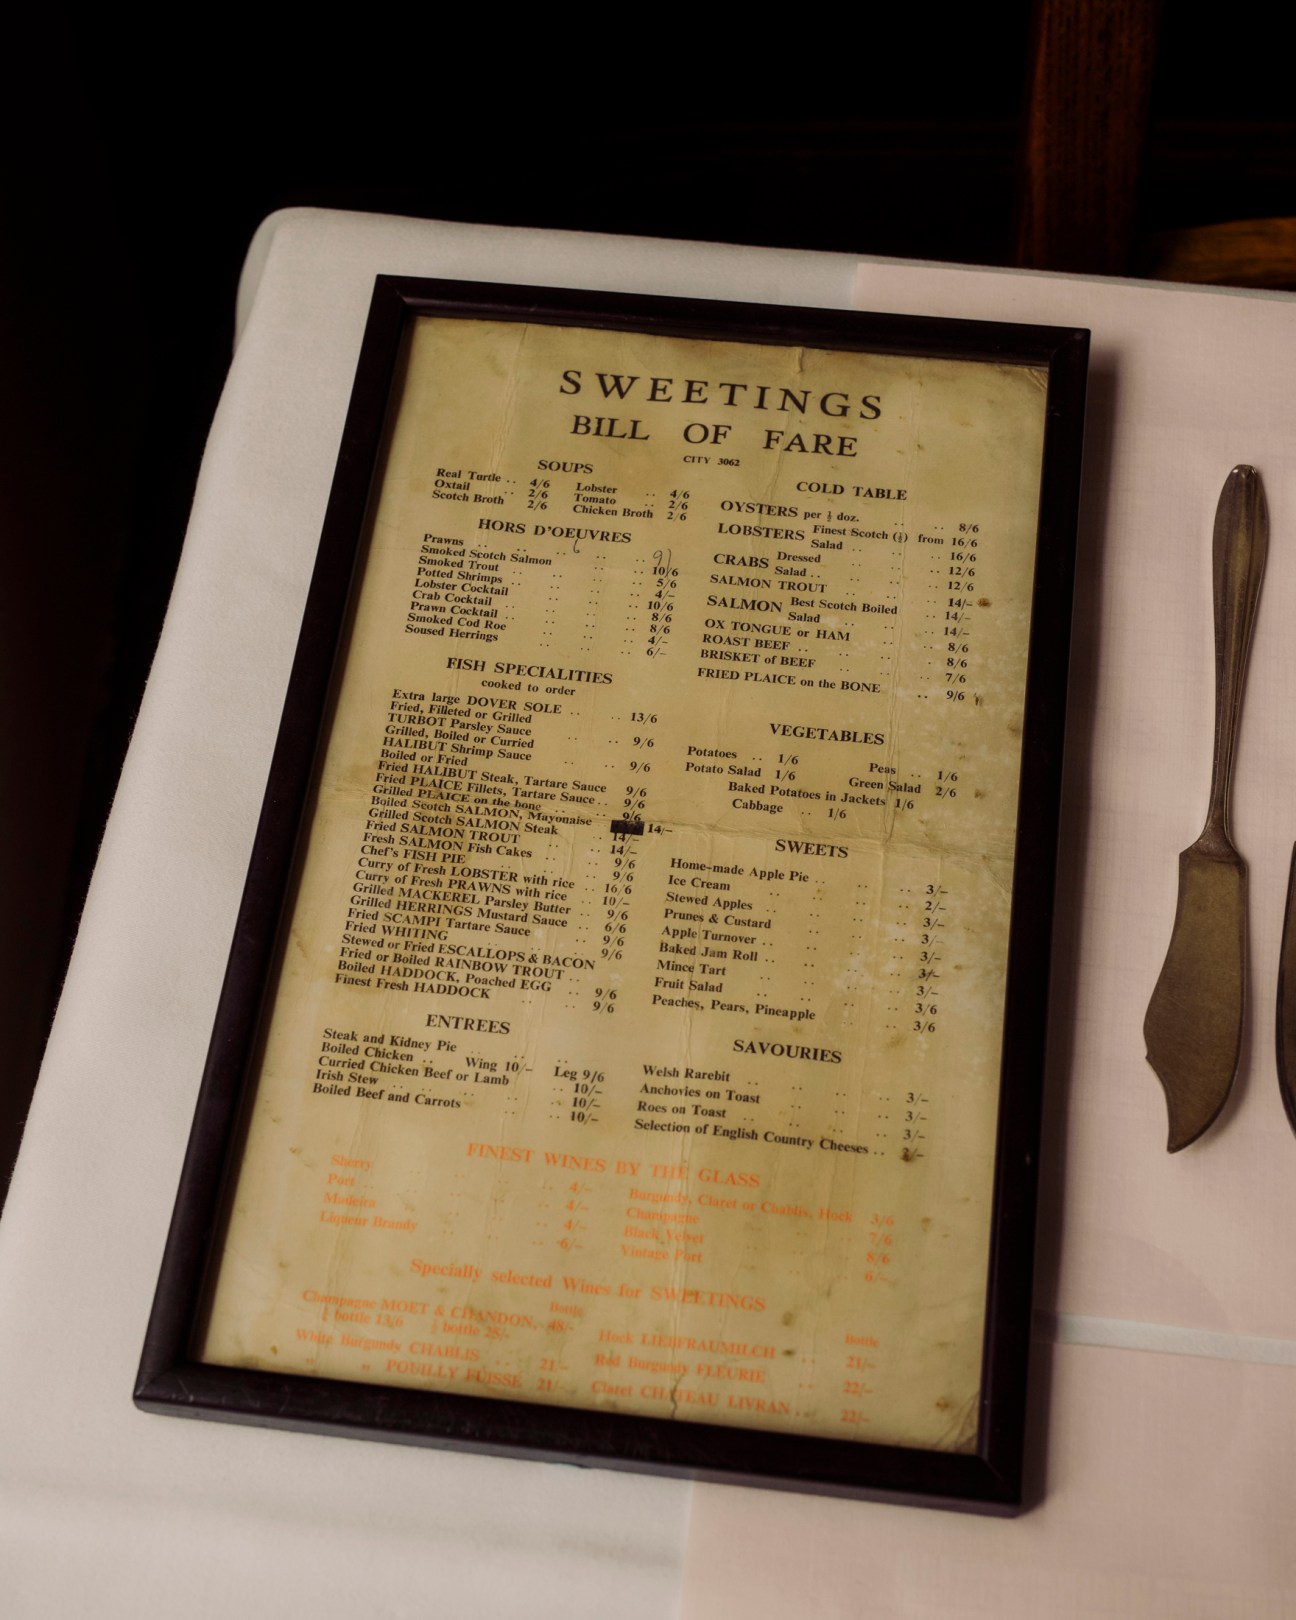 SWEETINGS
BILL OF FARE
CITY 3062
SOUPS
Real Turtle .. 4/6 Lobster .. 4/6
Oxtail .. 2/6 Tomato .. 2/6
Scotch Broth 2/6 Chicken Broth 2/6
HORS D'OEUVRES
Prawns .. .. .. .. 9/
Smoked Scotch Salmon .. .. 10/6
Smoked Trout .. .. .. 5/6
Potted Shrimps .. .. .. 4/-
Lobster Cocktail .. .. 10/6
Crab Cocktail .. .. .. 8/6
Prawn Cocktail .. .. .. 8/6
Smoked Cod Roe .. .. .. 4/-
Soused Herrings .. .. .. 6/-
FISH SPECIALITIES
cooked to order
Extra large DOVER SOLE .. .. 13/6
Fried, Filleted or Grilled
TURBOT Parsley Sauce .. .. 9/6
Grilled, Boiled or Curried
HALIBUT Shrimp Sauce .. .. 9/6
Boiled or Fried
Fried HALIBUT Steak, Tartare Sauce 9/6
Fried PLAICE Fillets, Tartare Sauce .. 9/6
Grilled PLAICE on the bone .. .. 9/6
Boiled Scotch SALMON, Mayonaise 14/-
Grilled Scotch SALMON Steak .. 14/-
Fried SALMON TROUT .. .. 14/-
Fresh SALMON Fish Cakes .. .. 9/6
Chef's FISH PIE .. .. 9/6
Curry of Fresh LOBSTER with rice .. 16/6
Curry of Fresh PRAWNS with rice .. 10/-
Grilled MACKEREL Parsley Butter .. 9/6
Grilled HERRINGS Mustard Sauce .. 6/6
Fried SCAMPI Tartare Sauce .. 9/6
Fried WHITING .. .. .. 9/6
Stewed or Fried ESCALLOPS & BACON
Fried or Boiled RAINBOW TROUT ..
Boiled HADDOCK, Poached EGG .. 9/6
Finest Fresh HADDOCK .. .. 9/6
ENTREES
Steak and Kidney Pie .. .. ..
Boiled Chicken .. Wing 10/- Leg 9/6
Curried Chicken Beef or Lamb .. 10/-
Irish Stew .. .. .. .. 10/-
Boiled Beef and Carrots .. .. 10/-
COLD TABLE
OYSTERS per ½ doz. .. .. 8/6
LOBSTERS Finest Scotch (½) from 16/6
Salad .. .. .. 16/6
CRABS Dressed .. .. 12/6
Salad .. .. .. 12/6
SALMON TROUT .. .. .. 14/-
SALMON Best Scotch Boiled .. 14/-
Salad .. .. .. 14/-
OX TONGUE or HAM .. .. 8/6
ROAST BEEF .. .. .. . 8/6
BRISKET of BEEF .. .. .. 7/6
FRIED PLAICE on the BONE .. 9/6
VEGETABLES
Potatoes .. 1/6 Peas .. 1/6
Potato Salad 1/6 Green Salad 2/6
Baked Potatoes in Jackets 1/6
Cabbage .. 1/6
SWEETS
Home-made Apple Pie .. .. .. 3/-
Ice Cream .. .. .. .. 2/-
Stewed Apples .. .. .. .. 3/-
Prunes & Custard .. .. .. 3/-
Apple Turnover .. .. .. .. 3/-
Baked Jam Roll .. .. .. .. 3/-
Mince Tart .. .. .. .. 3/-
Fruit Salad .. .. .. .. 3/6
Peaches, Pears, Pineapple .. .. 3/6
SAVOURIES
Welsh Rarebit .. .. .. .. 3/-
Anchovies on Toast .. .. .. 3/-
Roes on Toast .. .. .. .. 3/-
Selection of English Country Cheeses ..
FINEST WINES BY THE GLASS
Sherry .. .. .. 4/-
Port .. .. .. 4/-
Madeira .. .. .. 4/-
Liqueur Brandy .. .. .. 6/-
Burgundy, Claret or Chablis, Hock 3/6
Champagne .. .. .. 7/6
Black Velvet .. .. .. 8/6
Vintage Port .. .. .. 6/-
Specially selected Wines for SWEETINGS
Bottle
Champagne MOET & CHANDON, 48/-
¼ bottle 13/6 ½ bottle 25/-
White Burgundy CHABLIS .. .. 21/-
" " POUILLY FUISSE 21/-
Bottle
Hock LIEBFRAUMILCH .. .. 21/-
Red Burgundy FLEURIE .. 22/-
Claret CHATEAU LIVRAN .. .. 22/-